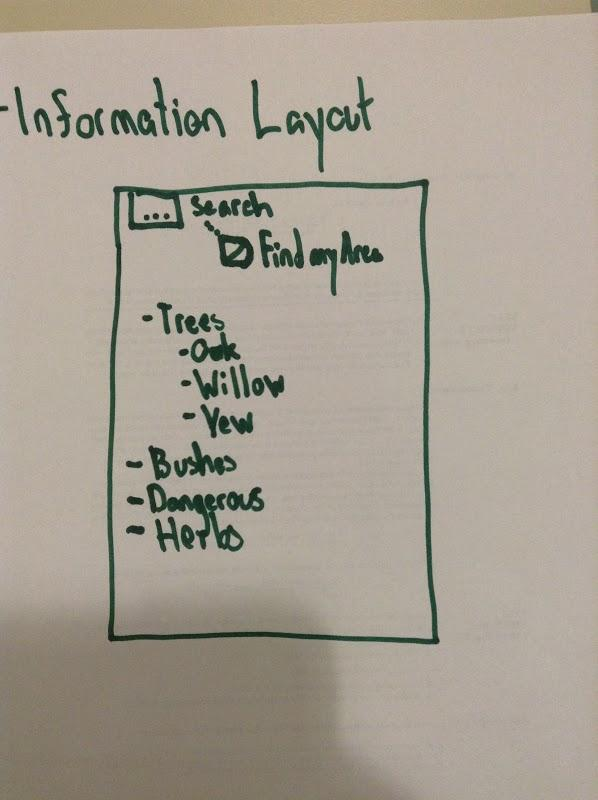 -Information Layout
... search
Find my Area
-Trees
-Oak
-Willow
-Yew
- Bushes
-Dangerous
- Herbs